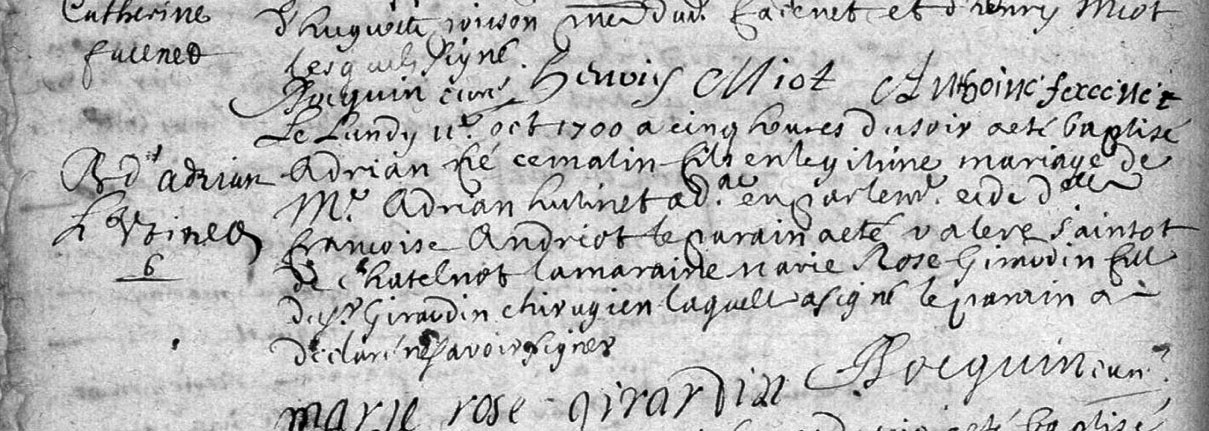 Catherine
d'huguette mēr dud. facenet et d'henry Miot
lesquels signé.
Rocquin curé henris Miot Anthoine facenet
Le Lundy 11e. oct 1700 a cinq heures du soir aeté baptisé
Bd adrian
Adrian né cematin fils en legitime mariage de
Mr. Adrian hutinet ad. en parlemt. et de
francoise Andriot le parain aeté valere Saintot
6
de Chatelnot lamaraine marie Rose Girardin fill
du sr Giraudin chirugien laquell asigné le parain a
declaré ne savoir signer
Rocquin curé
marie rose girardin
aeté baptisé